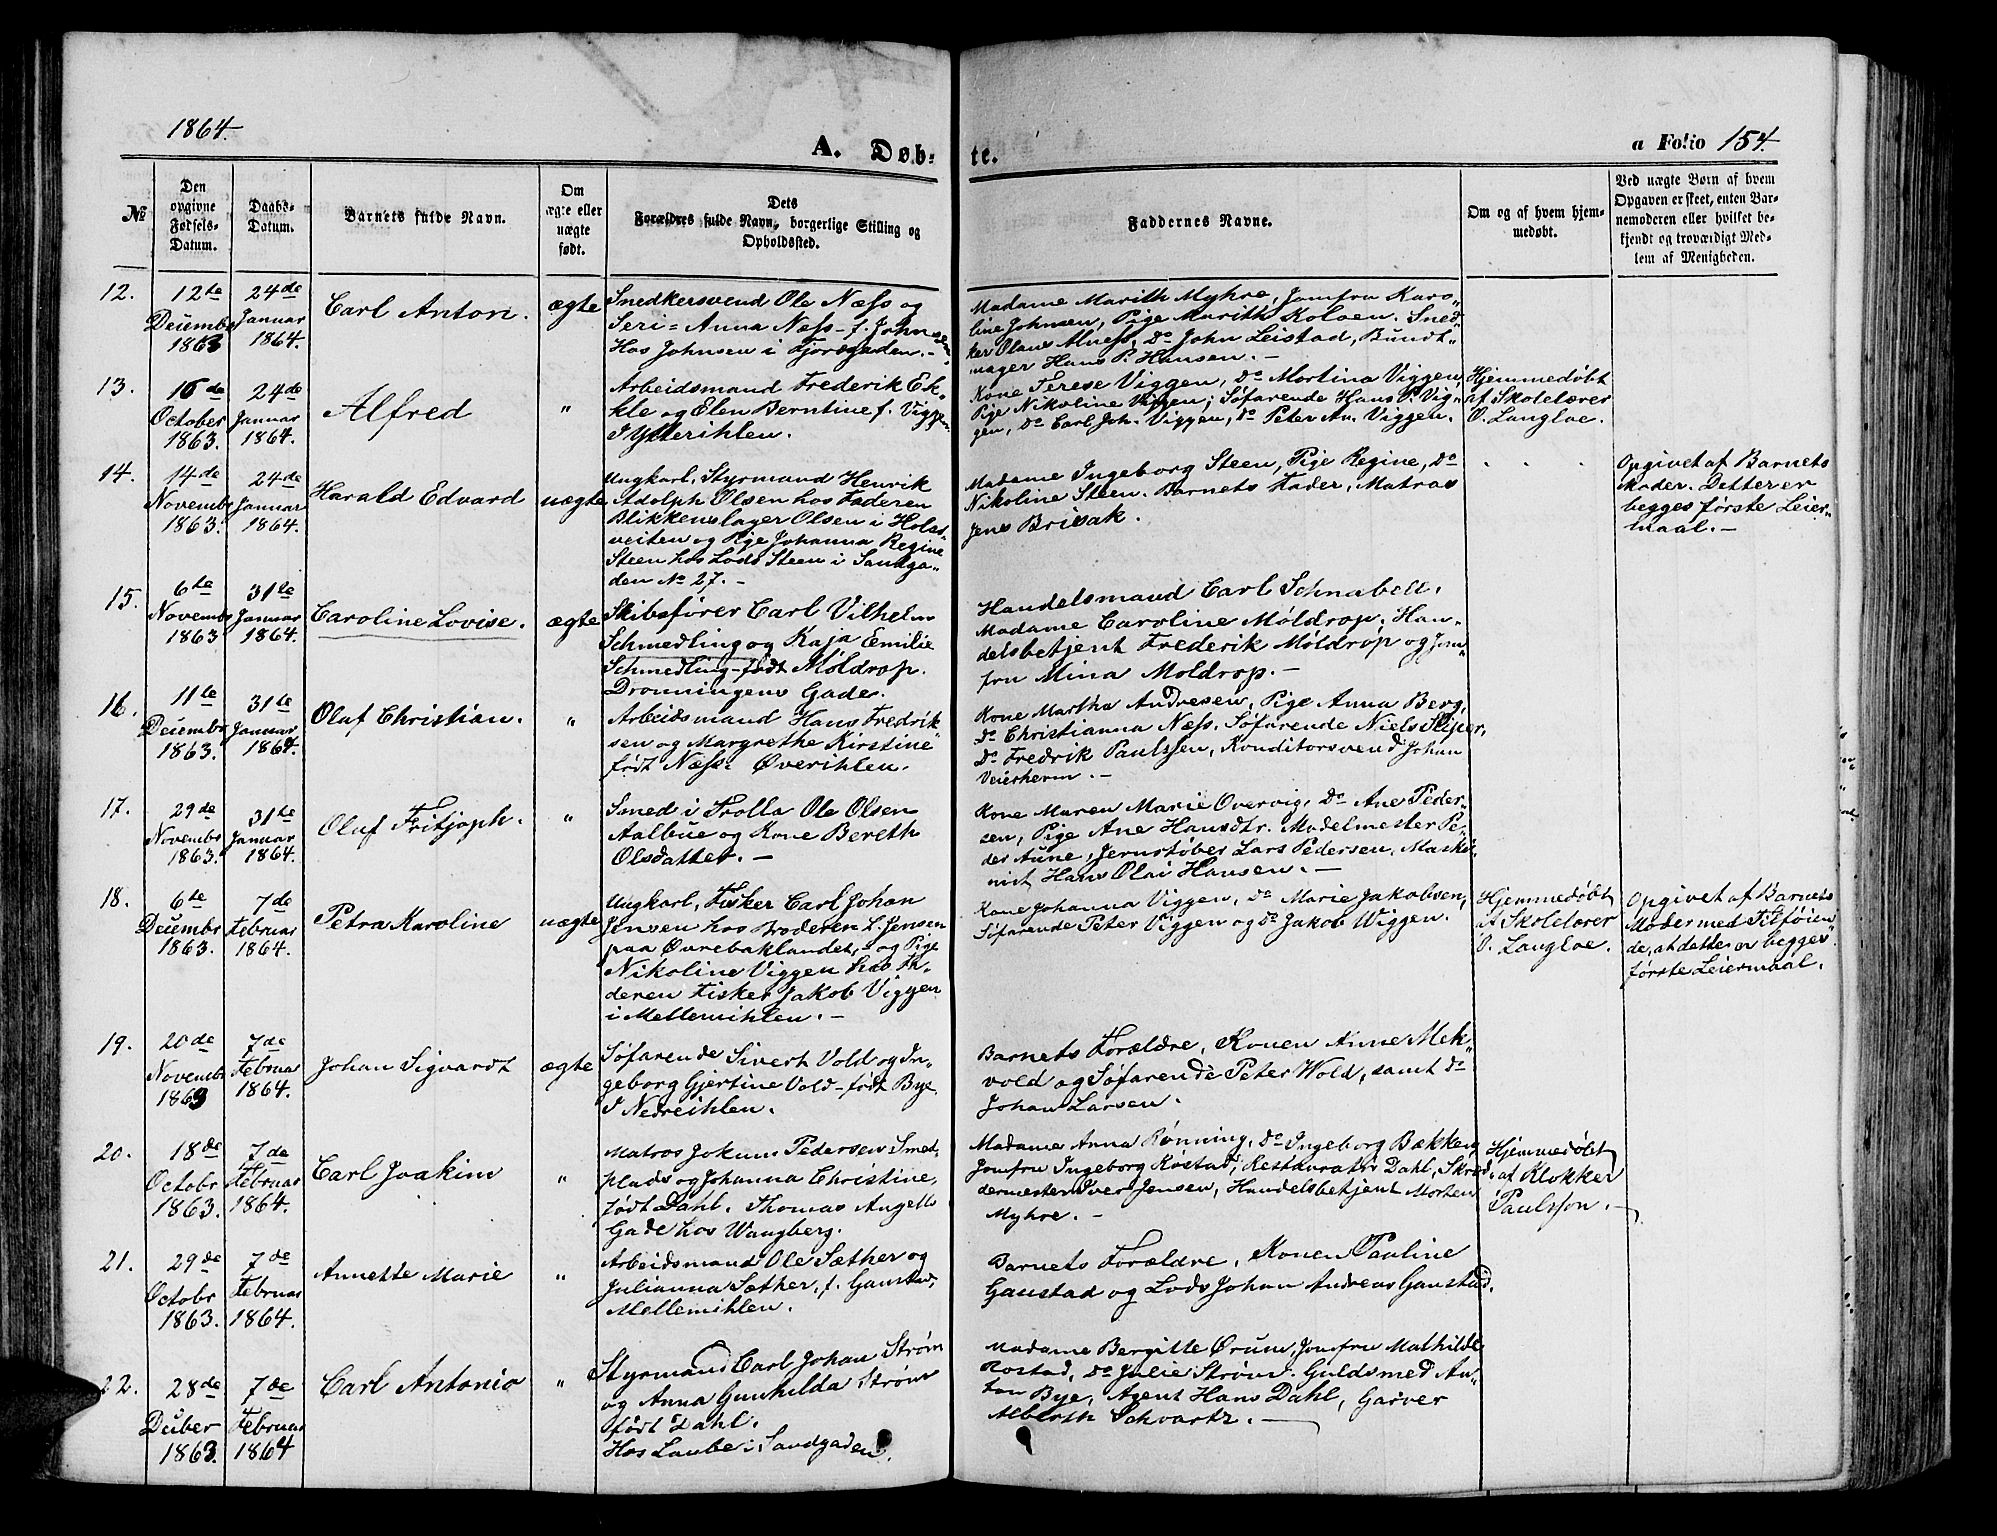 1864.
A. Døb-
te.
a Folio 154.
№
Den
opgivne
Fødsels-
Datum.
Daabs-
Datum.
Barnets fulde Navn.
Om
ægte eller
uægte
født.
Dets
Forældres fulde Navn, borgerlige Stilling og
Opholdssted.
Faddernes Navne.
Om og af hvem hjem-
medøbt.
Ved uægte Børn af hvem
Opgaven er skeet, enten Bar-
nemoderen eller hvilket be-
kjendt og troværdigt Med-
lem af Menigheden.
12.
12te
Decembr
1863
24de
Januar
1864.
Carl Anton.
ægte
Snedkersvend Ole Næss og
Seri=Anna Næss - f. Johnsen,
Hos Johnsen i Fjordgaden. -
Madame Marith Myhre, Jomfru Karo"
line Johnsen, Pige Marith Koloen. Sned"
ker Olaus Alness, Do John Leistad, Bundt"
mager Hans P. Hansen. -
13.
16de
October
1863.
24de
Januar
1864.
Alfred
"
Arbeidsmand Frederik Ek-
kle og Elen Berntine f. Viggen
I Ytterihlen.
Kone Terese Viggen, Do Martina Viggen,
Pige Nikoline Viggen; Søfarende Hans P. Vig-
gen, Do Carl Joh. Viggen, Do Peter An. Viggen.
Hjemmedøbt
af Skolelærer
O. Langloe.
14.
14de
Novembr
1863.
24de
Januar
1864.
Harald Edvard
uægte
Ungkarl, Styrmand Henrik
Adolph Olsen hos Faderen
Blikkenslager Olsen i Holst-
veiten og Pige Johanna Regine
Steen hos Lods Steen i Sandga-
den No 27. -
Madame Ingeborg Steen, Pige Regine, Do
Nikoline Steen. Barnets Fader, Matros
Jens Brisak.
Opgivet af Barnets
Moder. Dette er
begges første Leier-
maal. -
15.
6te
Novembr
1863
31te
Januar
1864.
Caroline Lovise.
ægte
Skibsfører Carl Vilhelm
Schmedling og Kaja Emilie
Schmedling - født Møldrop.
Dronningens Gade.
Handelsmand Carl Schnabelt.
Madame Caroline Møldrop, Han-
delsbetjent Frederik Møldrop og Jom"
fru Mina Moldrop. -
16.
11te
Decembr
1863.
31te
Januar
1864.
Oluf Christian.
"
Arbeidsmand Hans Fredrik
sen og Margrethe Kirstine
født Næss. Øverihlen.
Kone Martha Andresen, Pige Anna Berg,
Do Christianna Næss. Søfarende Niels Sliper,
Do Fredrik Paulssen, Konditorsvend Johan
Veierherm. -
17.
29de
Novembr
1863.
31te
Januar
1864.
Oluf Fritjoph.
"
Smed i Trolla Ole Olsen
Aalbue og Kone Bereth
Olsdatter. -
Kone Maren Marie Overvig, Do Ane Peder-
sen, Pige Ane Hansdtr. Modelmester Pe-
der Aune, Jernstøber Lars Pedersen, Maski-
nist Hans Olai Hansen. -
18.
6te
Decembr
1863.
7de
Februar
1864.
Petra Karoline
uægte
Ungkarl, Fisker Carl Johan
Jensen hos Broderen L. Jensen
paa Øvrebaklandet, og Pige
Nikoline Viggen hos Fa-
deren Fisker Jakob Viggen
i Mellemihlen. -
Kone Johanna Viggen, Do Marie Jakobsen,
Søfarende Peter Viggen og Do Jakob Wiggen.
Hjemmedøbt
af Skolelærer
O. Langloe.
Opgivet af Barnets
Moder med Tilføien
de, at dette er begges
første Leiermaal.
19.
20de
Novembr
1863
7de
Februar
1864.
Johan Sigvardt
ægte
Søfarende Sivert Vold og In-
geborg Gjertine Vold - født Bye.
I Nedreihlen.
Barnets Forældre, Konen Anne Mek"
vold og Søfarende Peter Wold, samt Do
Johan Larsen.
20.
18de
Octobr
1863.
7de
Februar
1864.
Carl Joakim
"
Matros Jokum Pedersen Smed-
plads og Johanna Christine,
født Dahl. Thomas Angells
Gade hos Wangberg.
Madame Anna Rønning, Do Ingeborg Bækken,
Jomfru Ingeborg Røstad; Restauratør Dahl, Skræd-
dermester Iver Jensen, Handelsbetjent Morten
Myhre. -
Hjemmedøbt
af Klokker
Paulsson. -
21.
29de
Octobr
1863.
7de
Februar
1864.
Annette Marie
"
Arbeidsmand Ole Sæther og
Julianna Sæther, f. Gaustad,
Mellemihlen.
Barnets Forældre, Konen Pauline
Gaustad og Lods Johan Andreas Gaustad.
22.
28de
Deuber
1863.
7de
Februar
1864
Carl Antonio
"
Styrmand Carl Johan Strøm
og Anna Gunhilda Strøm
født Dahl.
Hos Laube i Sandgaden.
Madame Bergitte Ørum, Jomfru Mathilde
Rostad, Do Julie Strøm. Guldsmed An-
ton Bye, Agent Hans Dahl, Garver
Alberth Schvartz. -